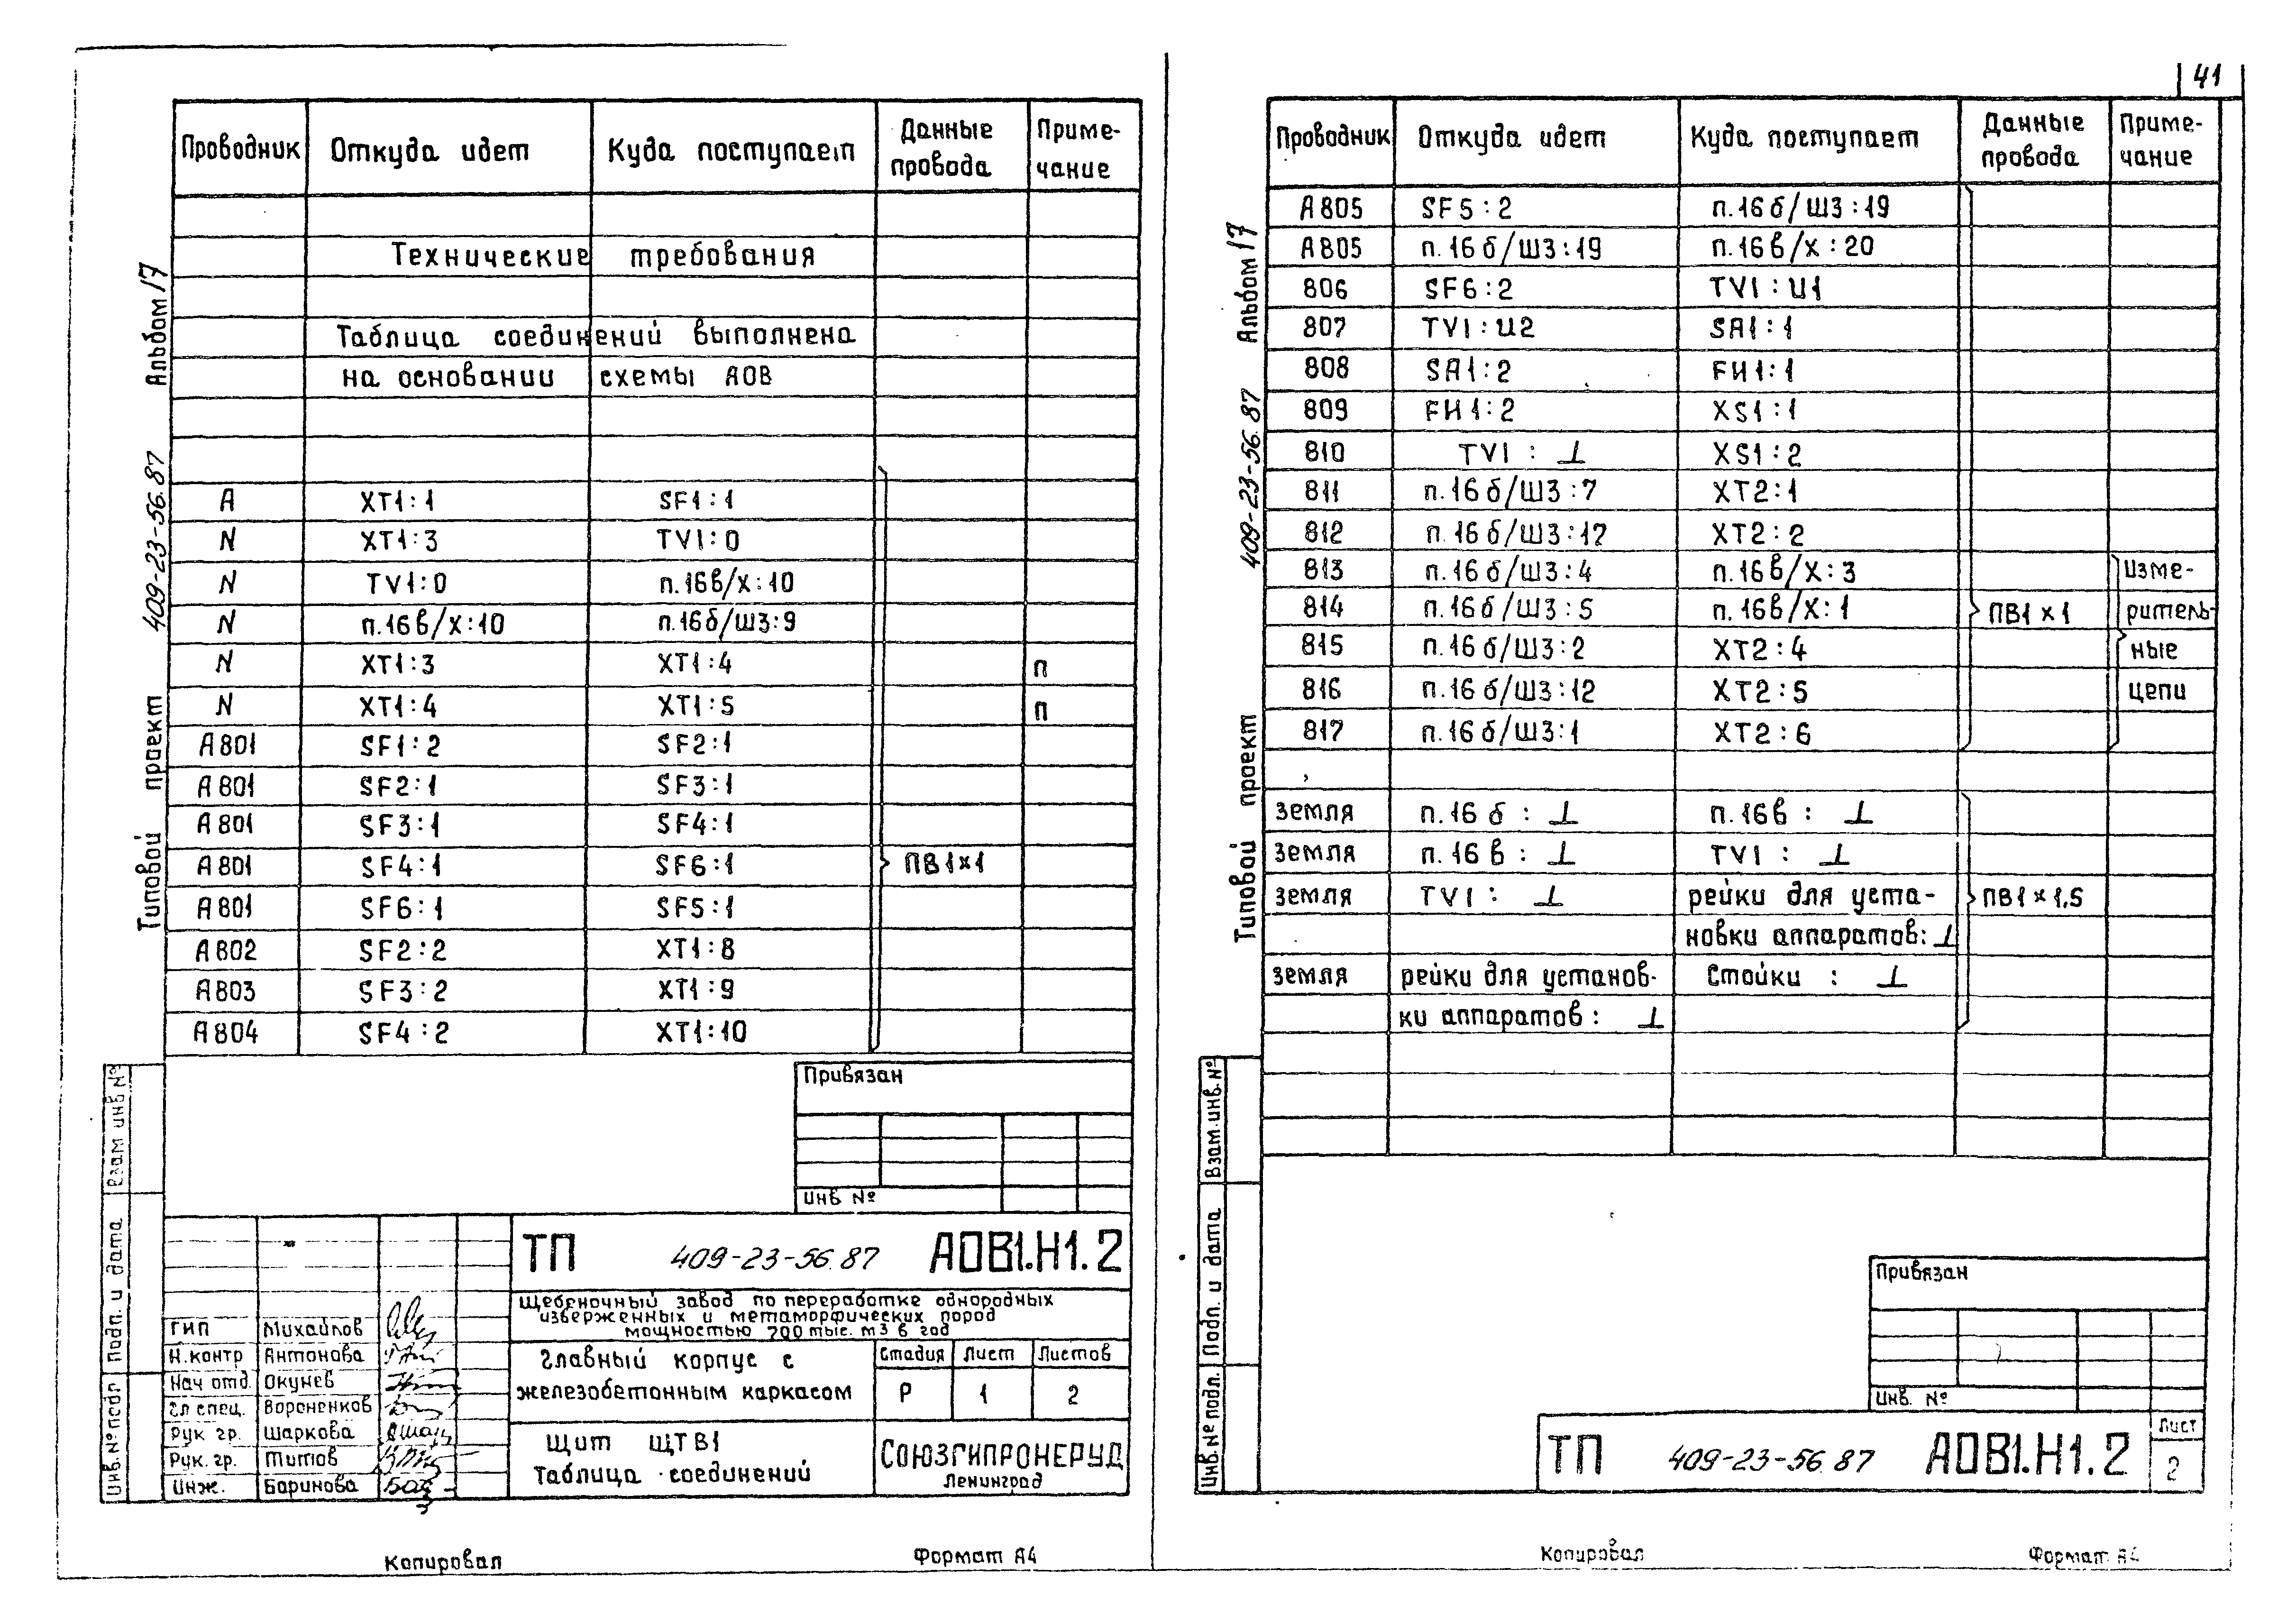 Проводник Откуда идет Куда поступает Данные провода Приме-чание
Технические требования
Таблица соединений выполнена
на основании схемы АОВ
А XT1:1 SF1:1
N XT1:3 TV1:0
N TV1:0 п.16в/X:10
N п.16в/X:10 п.16б/Ш3:9
N XT1:3 XT1:4 п
N XT1:4 XT1:5 п
А801 SF1:2 SF2:1
А801 SF2:1 SF3:1
А801 SF3:1 SF4:1
А801 SF4:1 SF6:1 ПВ1×1
А801 SF6:1 SF5:1
А802 SF2:2 XT1:8
А803 SF3:2 XT1:9
А804 SF4:2 XT1:10
Типовой проект 409-23-56.87 Альбом 17
Взам инв №
Подп. и дата
Инв.№ подл
Привязан
Инв №
ТП 409-23-56.87 АОВ1.Н1.2
Щебеночный завод по переработке однородных
изверженных и метаморфических пород
мощностью 700 тыс. м3 в год
ГИП Михайлов
Н.контр Антонова
Нач отд. Окунев
Гл спец. Вороненков
Рук гр. Шаркова
Рук. гр. Титов
Инж. Баринова
Главный корпус с
железобетонным каркасом
Стадия Лист Листов
Р 1 2
Щит ЩТВ1
Таблица соединений
СОЮЗГИПРОНЕРУД
Ленинград
Копировал Формат А4
41
Проводник Откуда идет Куда поступает Данные провода Приме-чание
А805 SF5:2 п.16б/Ш3:19
А805 п.16б/Ш3:19 п.16в/X:20
806 SF6:2 TV1:U1
807 TV1:U2 SA1:1
808 SA1:2 FU1:1
809 FU1:2 XS1:1
810 TV1:⊥ XS1:2
811 п.16б/Ш3:7 XT2:1
812 п.16б/Ш3:17 XT2:2
813 п.16б/Ш3:4 п.16в/X:3 Изме-
814 п.16б/Ш3:5 п.16в/X:1 ПВ1×1 ритель-
815 п.16б/Ш3:2 XT2:4 ные
816 п.16б/Ш3:12 XT2:5 цепи
817 п.16б/Ш3:1 XT2:6
земля п.16б:⊥ п.16в:⊥
земля п.16в:⊥ TV1:⊥
земля TV1:⊥ рейки для уста- ПВ1×1,5
новки аппаратов:⊥
земля рейки для установ- Стойки:⊥
ки аппаратов:⊥
Типовой проект 409-23-56.87 Альбом 17
Взам.инв.№
Подп. и дата
Инв.№ подл.
Привязан
Инв. №
ТП 409-23-56.87 АОВ1.Н1.2
Лист
2
Копировал Формат А4